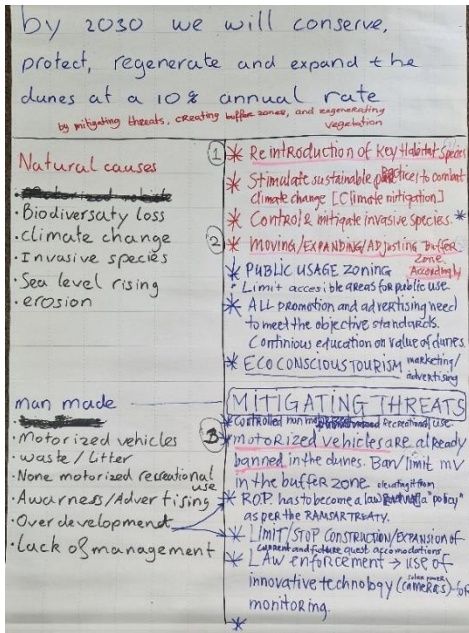 by 2030 we will conserve,
protect, regenerate and expand the
dunes at a 10% annual rate
by mitigating threats, creating buffer zones, and regenerating
vegetation
Natural causes
· Biodiversaty loss
· climate change
· Invasive species
· Sea level rising
· erosion
man made
· Motorized vehicles
· waste/Litter
· None motorized recreational
use
· Awarness/Advertising
· Over development
· Lack of management
1 * Reintroduction of Key Habitat Species
* Stimulate sustainable practice, to combat
climate change [Climate mitigation]
* Control & mitigate invasive species. *
2 * MOVING/EXPANDING/ADJUSTING BUFFER
ZONE.
Accordingly
* PUBLIC USAGE ZONING
· Limit accesible areas for public use
* ALL promotion and advertising need
to meet the objective standards.
Continious education on value of dunes.
* ECO CONSCIOUS TOURISM marketing/
advertising
MITIGATING THREATS
* Controlled non Recreational use
3 * motorized vehicles are already
banned in the dunes. Ban/limit mv
in the buffer zone
* R.O.P. has to become a law a "policy"
as per the RAMSAR TREATY.
* LIMIT/STOP CONSTRUCTION/EXPANSION OF
current and future guest accomodations
* LAW enforcement → use of
innovative technology (cameras) for
solar power
monitoring.
*